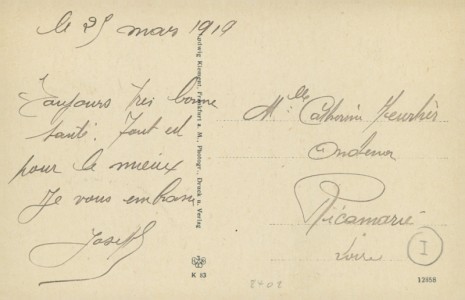 le 25 mars 1919
Toujours très bonne
santé. Tout est
pour le mieux
Je vous embrasse
Joseph
Ludwig Klement, Frankfurt a. M., Photogr., Druck u. Verlag
K 83
Mlle Catherine
Ricamarie
Loire
I
12858
8408